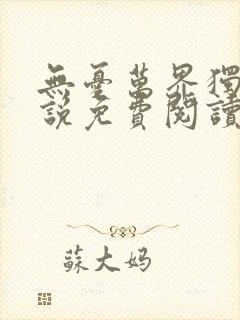 無憂萬界獨
說免費閱讀
蘇大妈